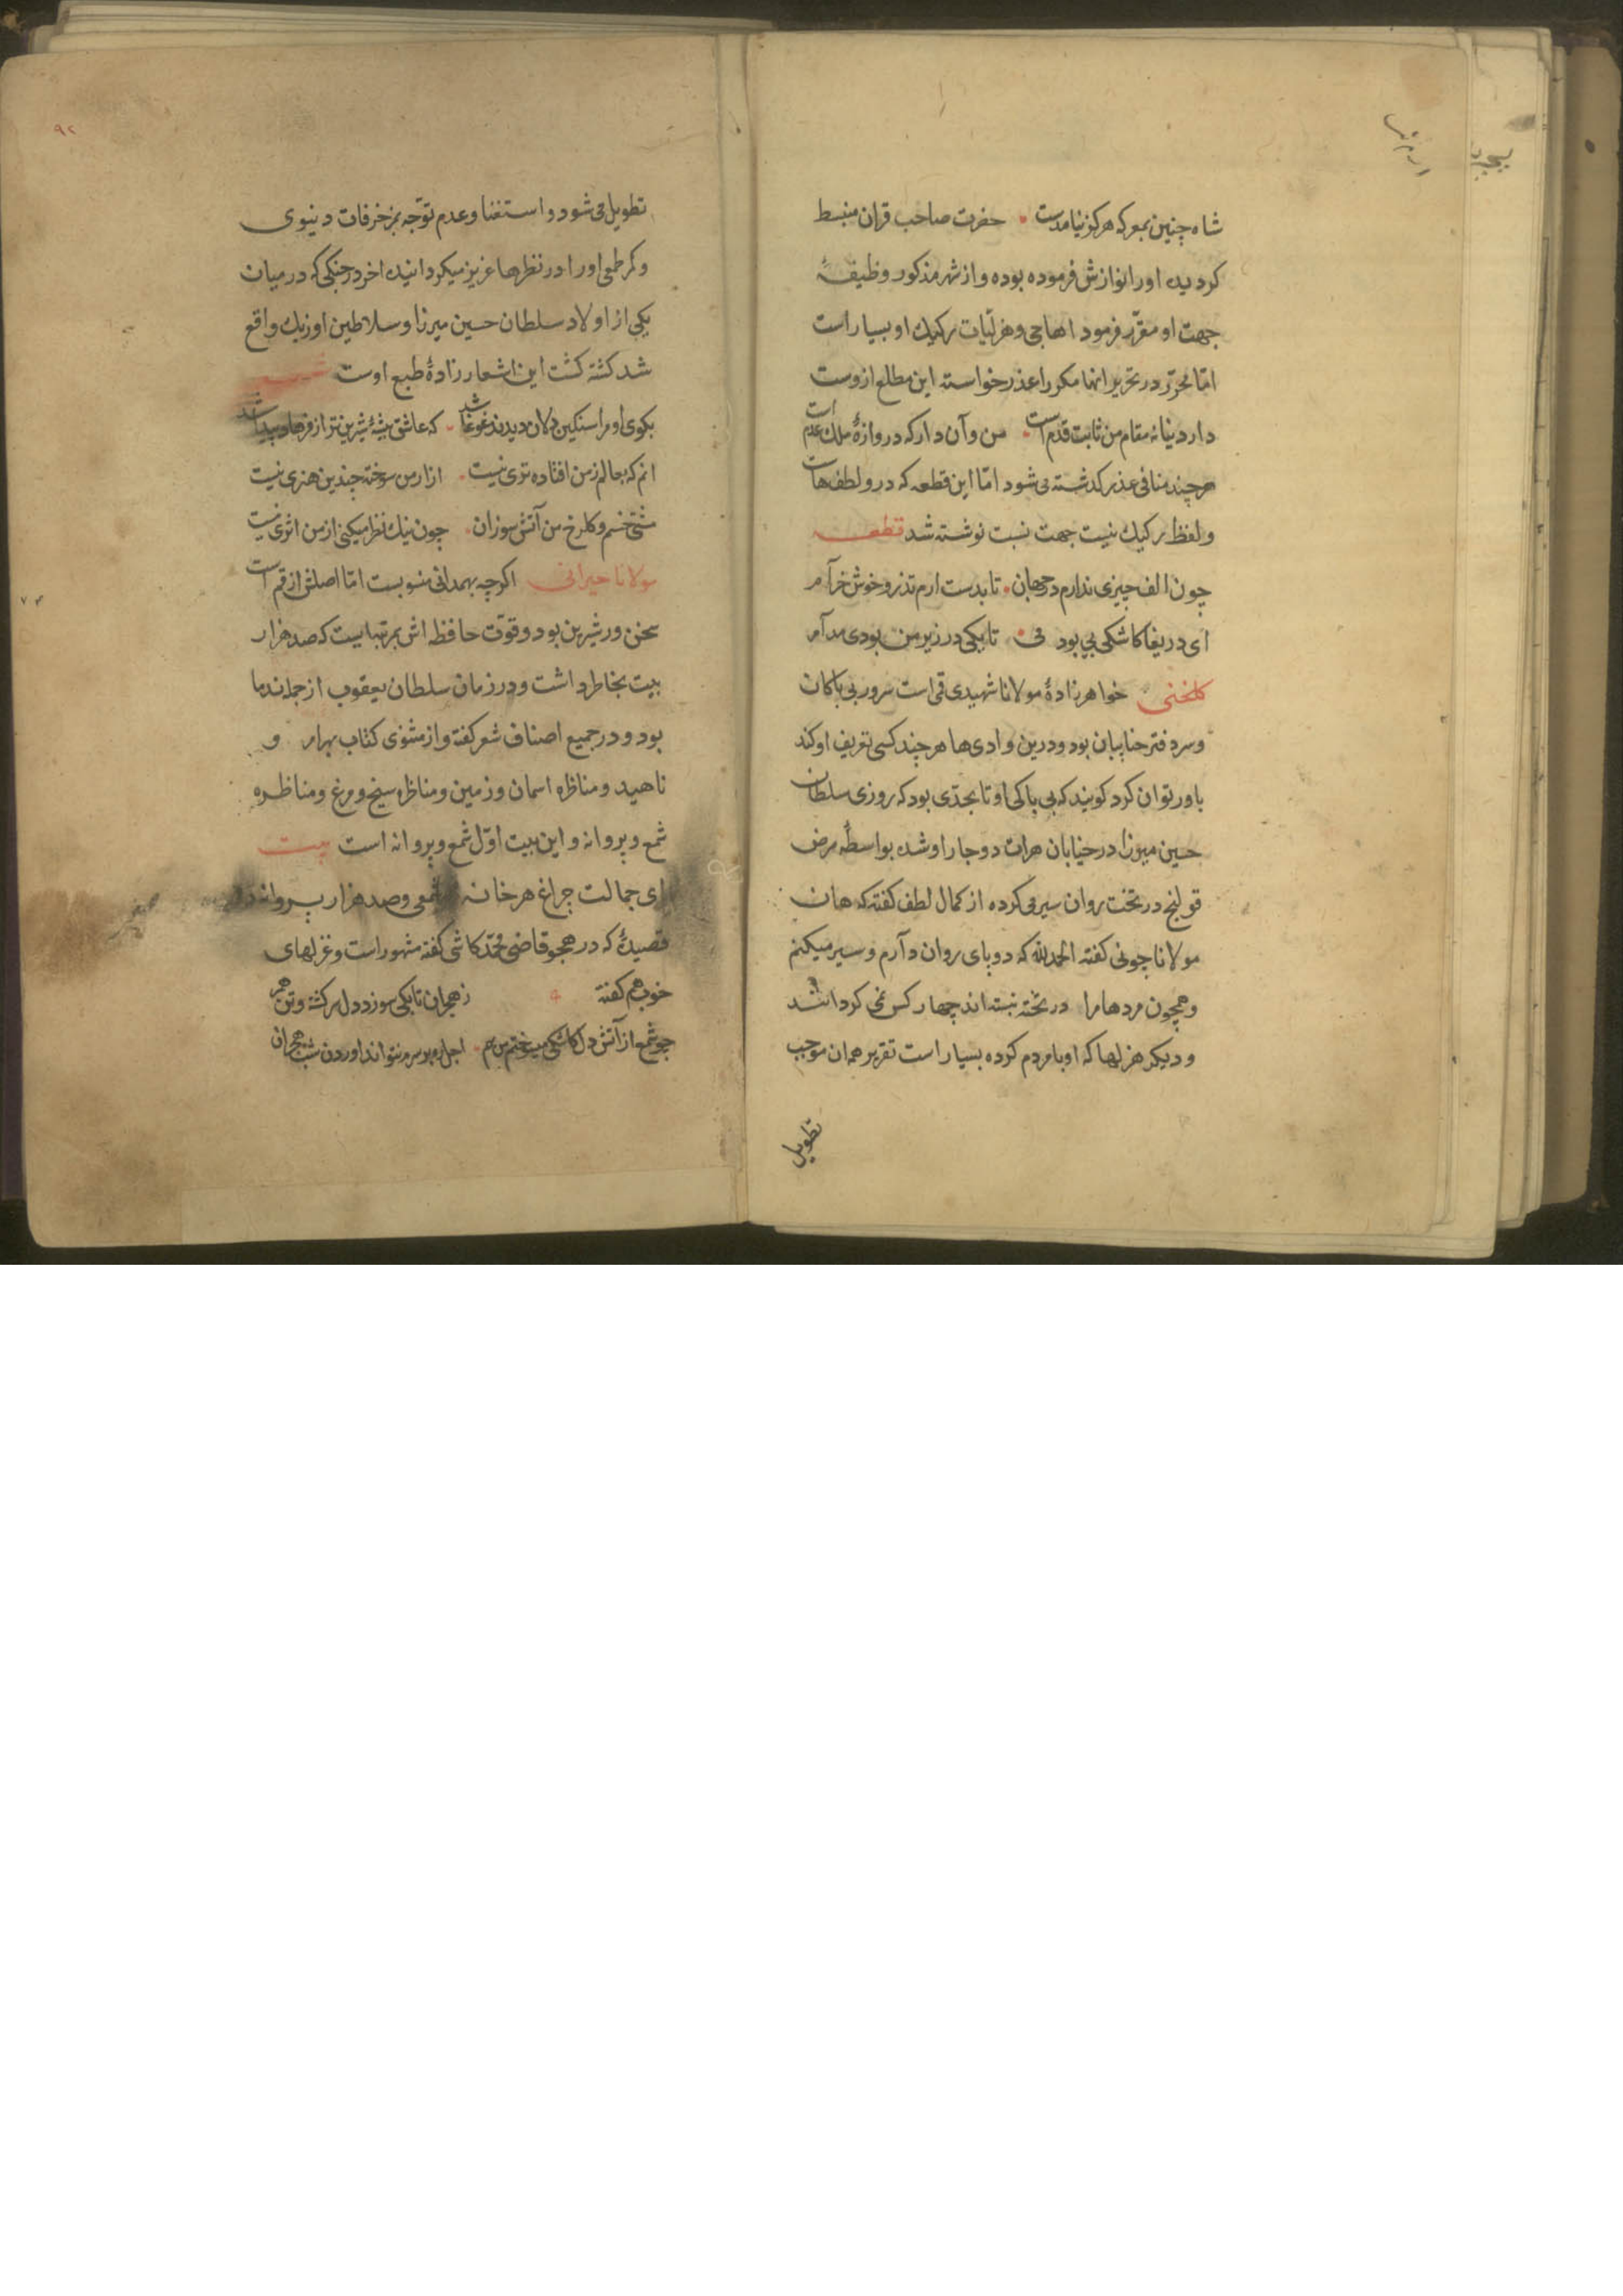 شاه چنین بمعرکه هرکز نیامدست حضرت صاحب قران منبسط
کردیده اورا نوازش فرموده بوده و از شهر مذکور وظیفهٔ
جهت او مقرّر فرمود اهاجی و هزلیّات رکیك او بسیار است
امّا محرّر در تحریر انها مکرر اعذر خواسته این مطلع ازوست
دارد نیانه مقام من ثابت قدم است من و آن دار که دروازهٔ ملك عدم است
هرچند منافی عذر کدشته می شود امّا این قطعه که درو لطف هاست
و لفظ رکیك نیست جهت نسبت نوشته شد قطعه
چون الف چیزی ندارم در جهان تا بدست ارم تذرو خوش خرام
ای دریغا کاشکی بی بود می تا یکی در زیر من بودی مدام
کلخنی خواهرزادهٔ مولانا شهیدی قمی است سرور بی باکان
و سر دفتر حنابیان بود و درین وادی ها هر چند کسی تعریف او کند
باور توان کرد کویند که بی باکی او تا بحدّی بود که روزی سلطان
حسین میرزا در خیابان هرات دوچار او شده بواسطهٔ مرض
قولنج در تخت روان سیر می کرده از کمال لطف کفته که هان
مولانا چونی کفته الحمدلله که دو پای روان دارم و سیر میکنم
و همچون مردها مرا در تخته نبسته اند چهار کس نمی کردانند
و دیکر هزلها که او با مردم کرده بسیار است تقریر همان موجب
تطویل
۹۲
تطویل می شود و استغنا و عدم توّجه بمزخرفات دنیوی
و کم طمعی اورا در نظرها عزیز میکردانیده اخر در جنکی که در میان
یکی از اولاد سلطان حسین میرزا و سلاطین اوزبك واقع
شد کشته کشت این اشعار زادهٔ طبع اوست
بکوی او مرا سنکین دلان دیدند غوغا شد که عاشق پیشهٔ شیرین تر از فرهاد پیدا شد
انم که بعالم ز من افتاده تری نیست ازار من سوخته چندین هنری نیست
مشتی خسم و کلرخ من آتش سوزان چون نیك نظر میکنی از من اثری نیست
مولانا حیرانی اکرچه بهمدانی منسوبست امّا اصلش از قم است
سخن ور شیرین بود و قوّت حافظه اش بمرتبه ایست که صد هزار
بیت بخاطر داشت و در زمان سلطان یعقوب از جمله ندما
بود و در جمیع اصناف شعر کفته و از مثنوی کتاب بهرام و
ناهید و مناظره اسمان و زمین و مناظره سیخ و مرغ و مناظره
شمع و پروانه و این بیت اوّل شمع و پروانه است بیت
ای جمالت چراغ هر خانه شمعی و صد هزار پروانه
قصیدهٔ که در هجو قاضی محمّد کاشی کفته مشهور است و غزلهای
خوب هم کفته ز هجران تا بکی سوزد دل سرکشته و تن هم
چو شمع از آتش دل کاشکی میسوختم من هم اجل ره بر سرم نتواند اوردن شب هجران